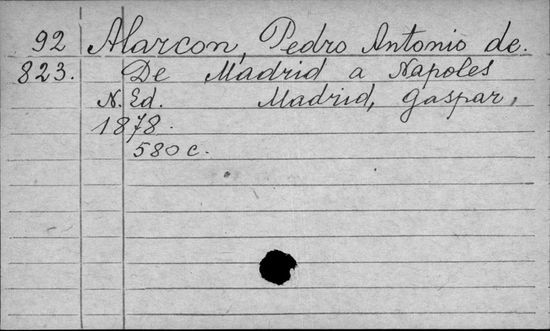 92 Alarcon, Pedro Antonio de.
823. De Madrid a Napoles
N. Ed. Madrid, Gaspar,
1878.
580 c.